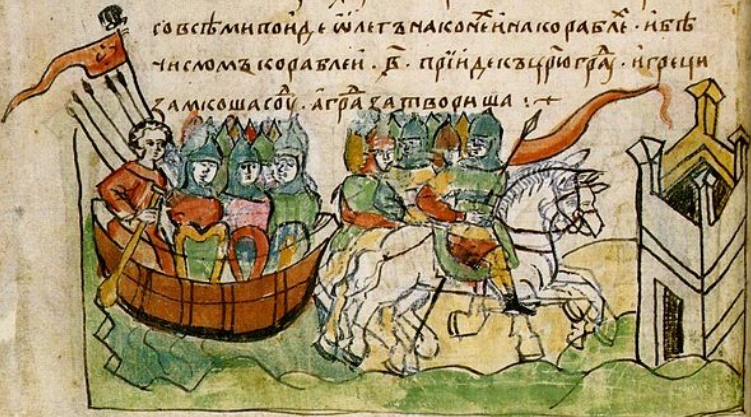 со всѣми поиде ѡлегъ на конеⷯ и на кораблеⷯ · и бѣ
числомъ кораблеи · в҃ · прїиде къ цр҃югра · и греци
замкоша соу · а градⷣ затвориша :+